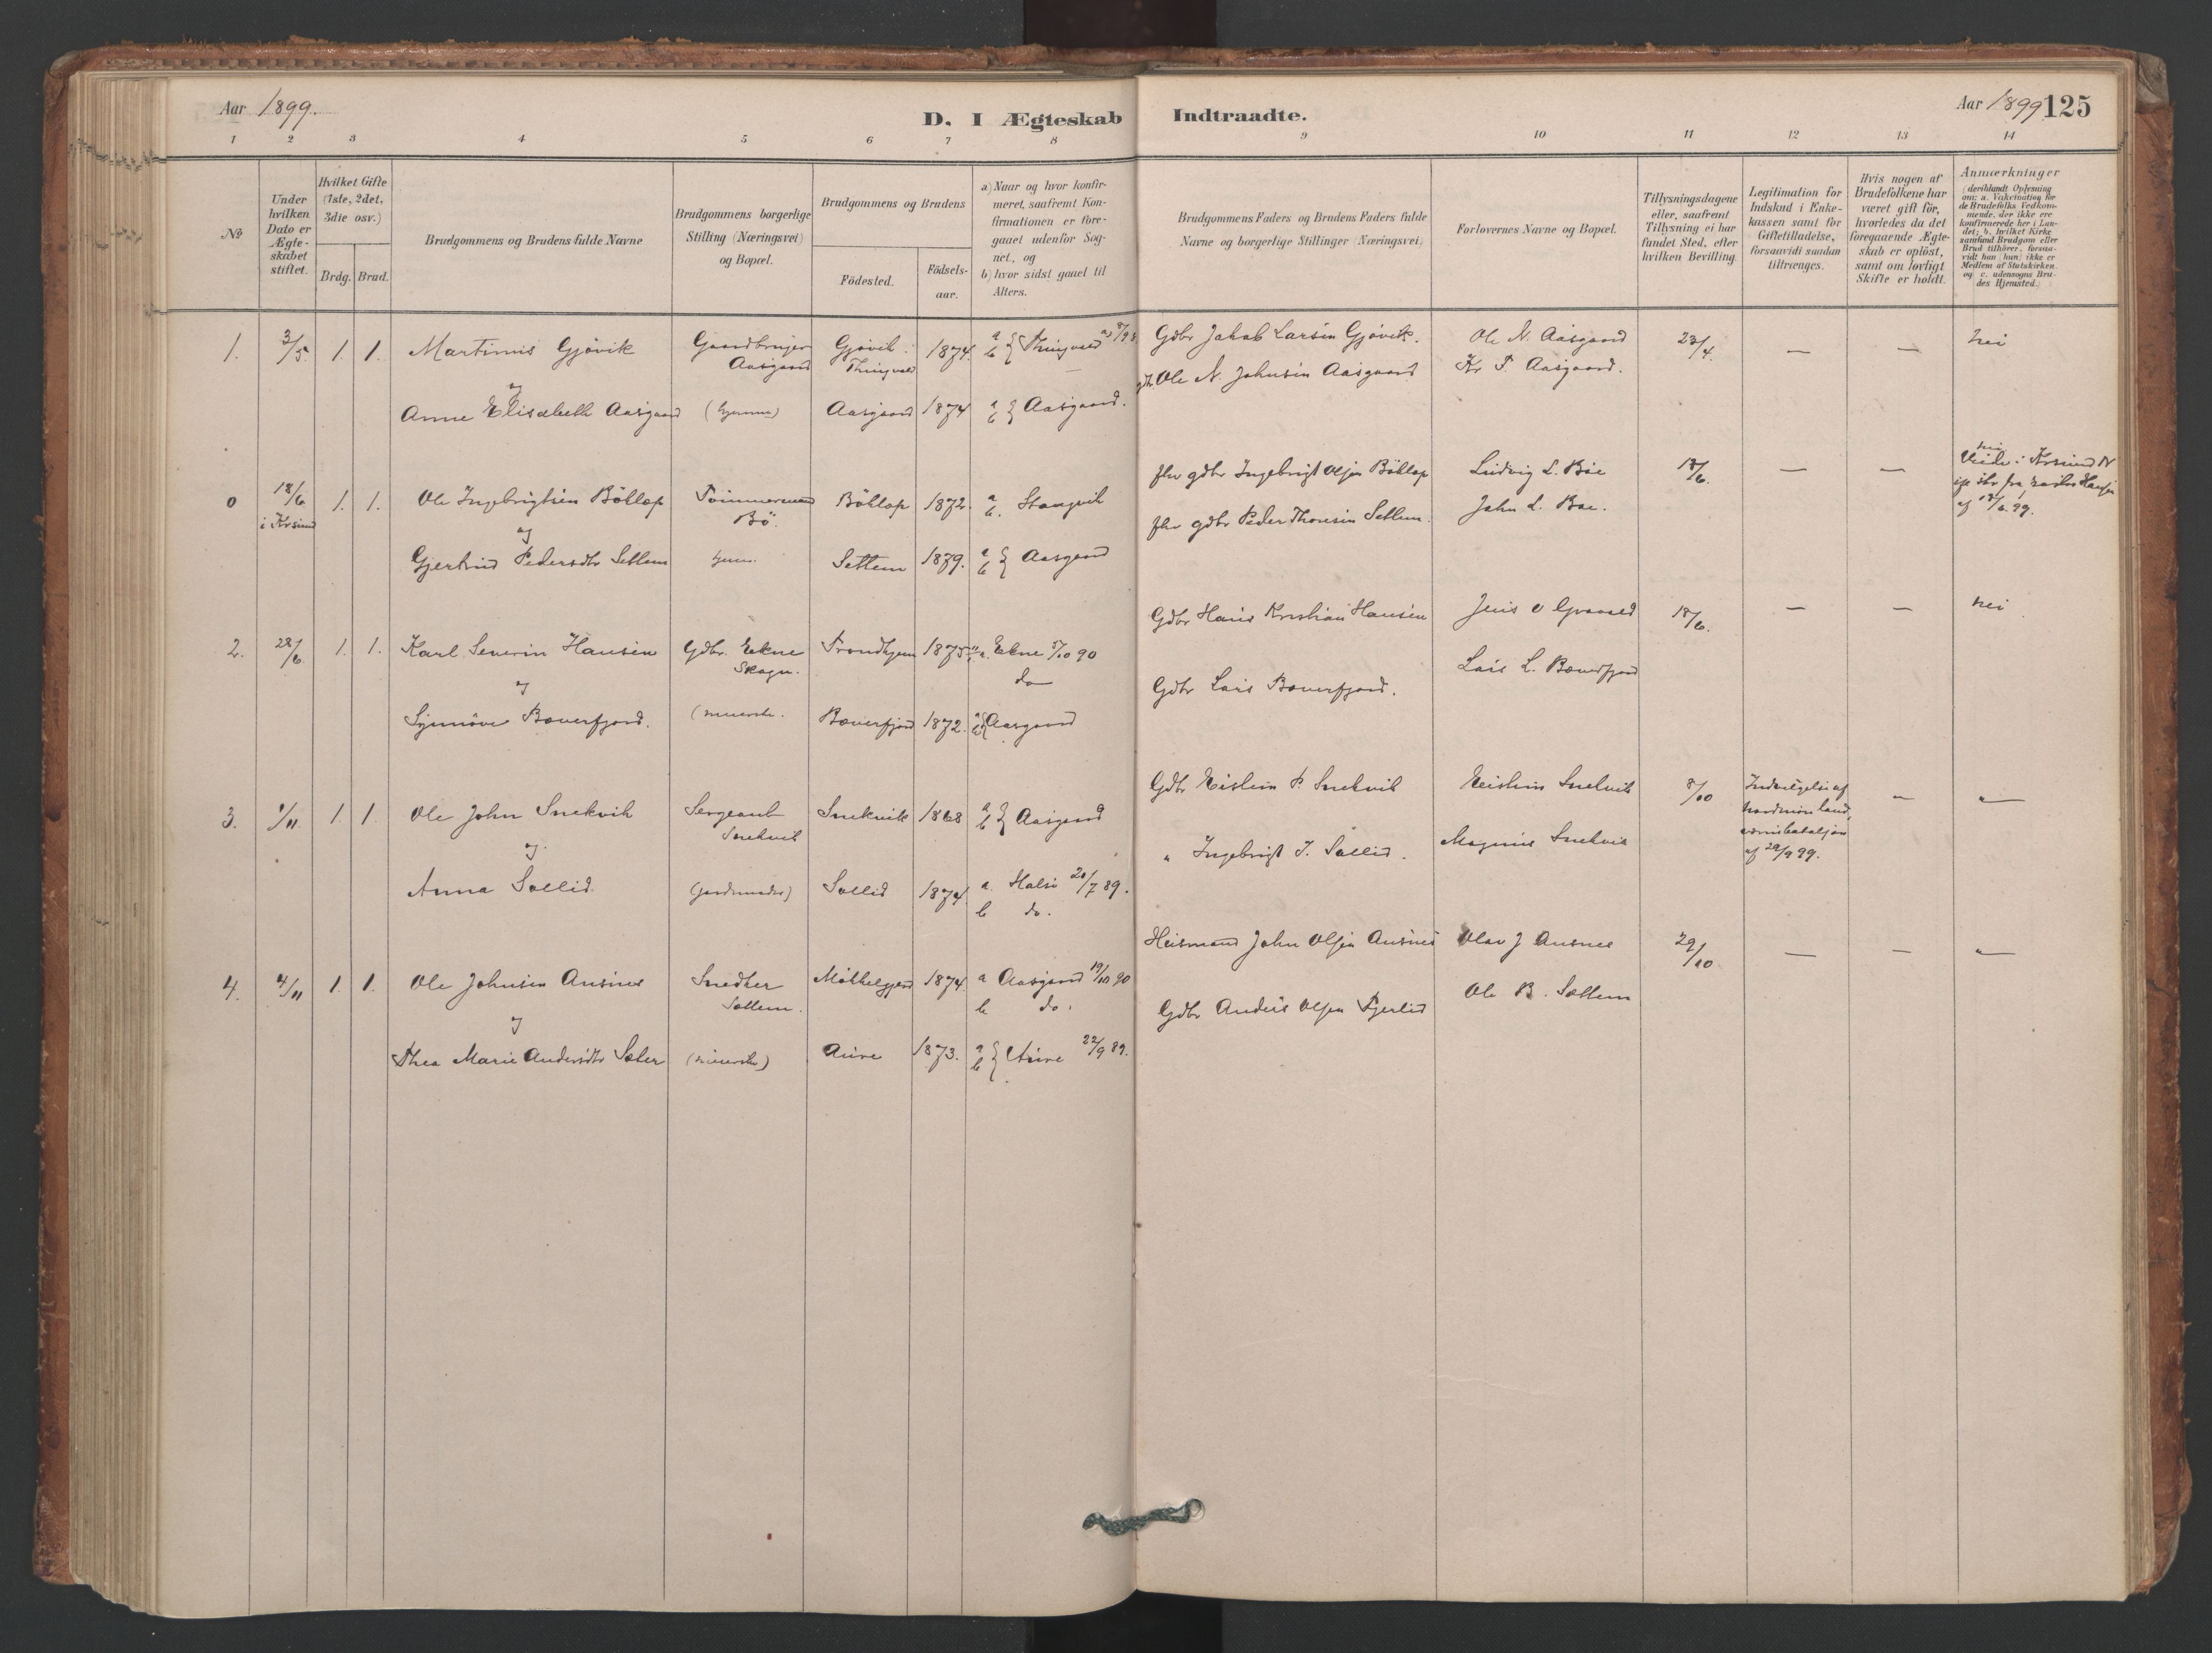 Aar 1899.
D. I Ægteskab Indtraadte.
Aar 1899 125
1 2 3 4 5 6 7 8 9 10 11 12 13 14
No
Under hvilken Dato er Ægte-skabet stiftet.
Hvilket Gifte (1ste, 2det, 3die osv.)
Brdg. Brud.
Brudgommens og Brudens fulde Navne
Brudgommens borgerlige Stilling (Næringsvei) og Bopæl.
Brudgommens og Brudens
Födested.
Födsels-aar.
a) Naar og hvor konfir-meret, saafremt Kon-firmationen er fore-gaaet udenfor Sog-net, og
b) hvor sidst gaaet til Alters.
Brudgommens Faders og Brudens Faders fulde Navne og borgerlige Stillinger (Næringsvei)
Forlovernes Navne og Bopæl.
Tillysningsdagene eller, saafremt Tillysning ei har fundet Sted, efter hvilken Bevilling.
Legitimation for Indskud i Enke-kassen samt for Giftetilladelse, forsaavidt saadan tiltrænges.
Hvis nogen af Brudefolkene har været gift för, hvorledes da det foregaaende Ægte-skab er oplöst, samt om lovligt Skifte er holdt.
Anmærkninger (deriblandt Oplysning om: a. Vakcination for de Brudefolks Vedkom-mende, der ikke ere konfirmerede her i Lan-det; b. hvilket Kirke samfund Brudgom eller Brud tilhörer, forsaa-vidt han (hun) ikke er Medlem af Statskirken, og c. udensogns Bru-des Hjemsted.)
1. 3/5. 1. 1. Martinus Gjövik Gaardbruger Aasgaard Gjövik Thingvold 1874. a b } Thingvold Gdbr Jakob Larsen Gjövik. Ole N. Aasgaard 23/4. — — nei
og
Anne Elisabeth Aasgaard (hjemme) Aasgaard 1874 a b } Aasgaard. gdbr Ole N. Johnsen Aasgaard Kr P. Aasgaard.
0 18/6 i Krsund 1. 1. Ole Ingebrigtsen Böklap Tömmermand Bö. Böklap 1872. a b. Stangvik fhv gdbr Ingebrigt Olsen Böklap Ludvig L. Böe 18/6. — — nei
Viede i Krsund N
af 18/6 99.
og
Gjertrud Pedersdtr Settem hjem. Settem 1879. a b } Aasgaard fhv gdbr Peder Thoresen Settem. John L. Böe.
2. 28/6 1. 1. Karl Severin Hansen Gdbr. Ekne Skogn. Trondhjem 1875 a. Ekne 5/10 90 do Gdbr Hans Kristian Hansen Jens O Gravald 18/6. — — nei
og
Synnöve Bæverfjord. Bæverfjord 1872. a b { Aasgaard Gdbr Lars Bæverfjord. Lars L. Bæverfjord
3. 1/11. 1. 1. Ole John Snekvik Sergeant Snekvik Snekvik 1868 a b } Aasgaard Gdbr Eistein P. Snekvik Eistein Snekvik 8/10 Indvilgelse af Nordmöre land-værnsbataljon af 29/9 99. — —
og
Anna Sollid (jordmoder) Sollid 1874 a. Halse 20/7 89. b do. " Ingebrigt J. Sollid. Magnus Snekvik
4. 4/11 1. 1. Ole Johnsen Ansnes Snedker Settem. Mökkelgjerd 1874. a Aasgaard 19/10 90 b do. Husmand John Olsen Ansnes Olav J Ansnes 29/10 — — —
og
Thea Marie Andersdtr Sæter Aure 1873. a b { Aure 22/9 89. Gdbr Anders Olsen Ole B. Settem